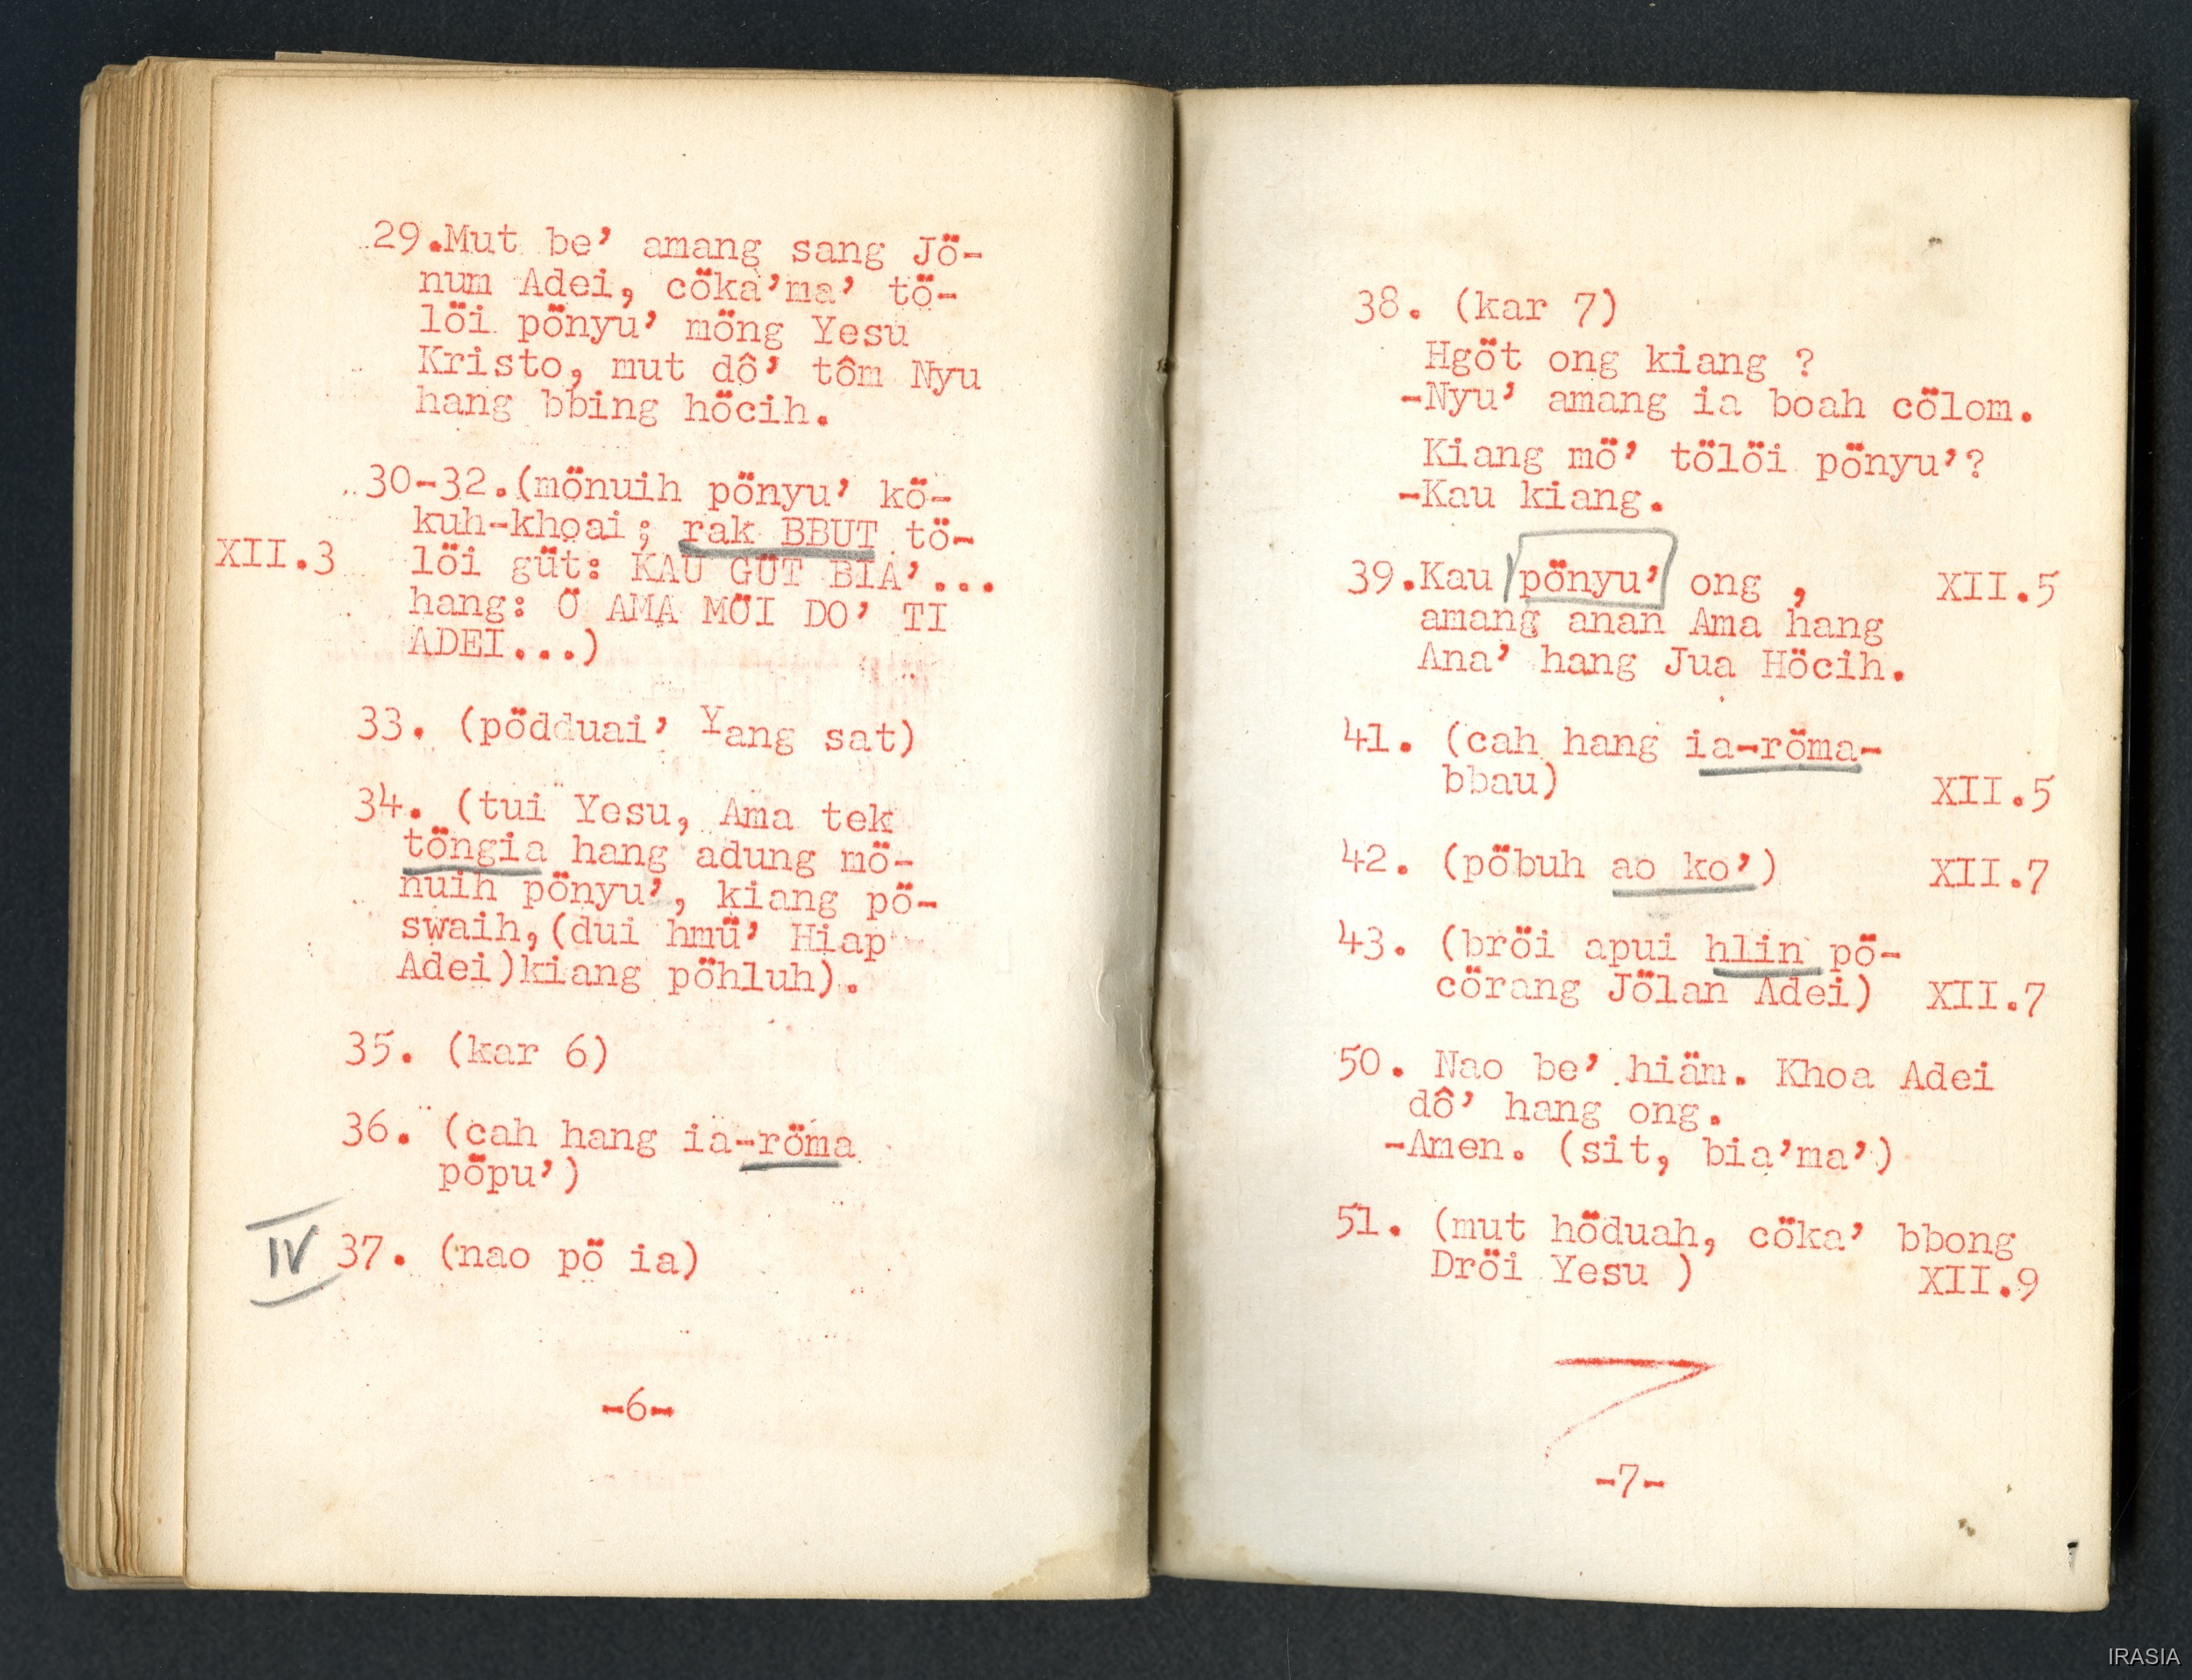 29.Mut be’ amang sang Jö-
num Adei, cöka’ma’ tö-
löi pönyu’ möng Yesu
Kristo, mut dô’ tôm Nyu
hang bbing höcih.
30-32.(mönuih pönyu’ kö-
kuh-khoai; rak BBUT tö-
XII.3 löi güt: KAU GÜT BIA’...
hang: Ö AMA MÖI DO’ TI
ADEI...)
33. (pödduai’ Yang sat)
34. (tui Yesu, Ama tek
töngia hang adung mö-
nuih pönyu’, kiang pö-
swaih,(dui hmü’ Hiap
Adei)kiang pöhluh).
35. (kar 6)
36. (cah hang ia-röma
pöpu’)
IV 37. (nao pö ia)
-6-
38. (kar 7)
Hgöt ong kiang ?
-Nyu’ amang ia boah cölom.
Kiang mö’ tölöi pönyu’?
-Kau kiang.
39.Kau pönyu’ ong , XII.5
amang anan Ama hang
Ana’ hang Jua Höcih.
41. (cah hang ia-röma-
bbau) XII.5
42. (pöbuh ao ko’) XII.7
43. (bröi apui hlin pö-
cörang Jölan Adei) XII.7
50. Nao be’ hiäm. Khoa Adei
dô’ hang ong.
-Amen. (sit, bia’ma’)
51. (mut höduah, cöka’ bbong
Dröi Yesu ) XII.9
7
-7-
IRASIA